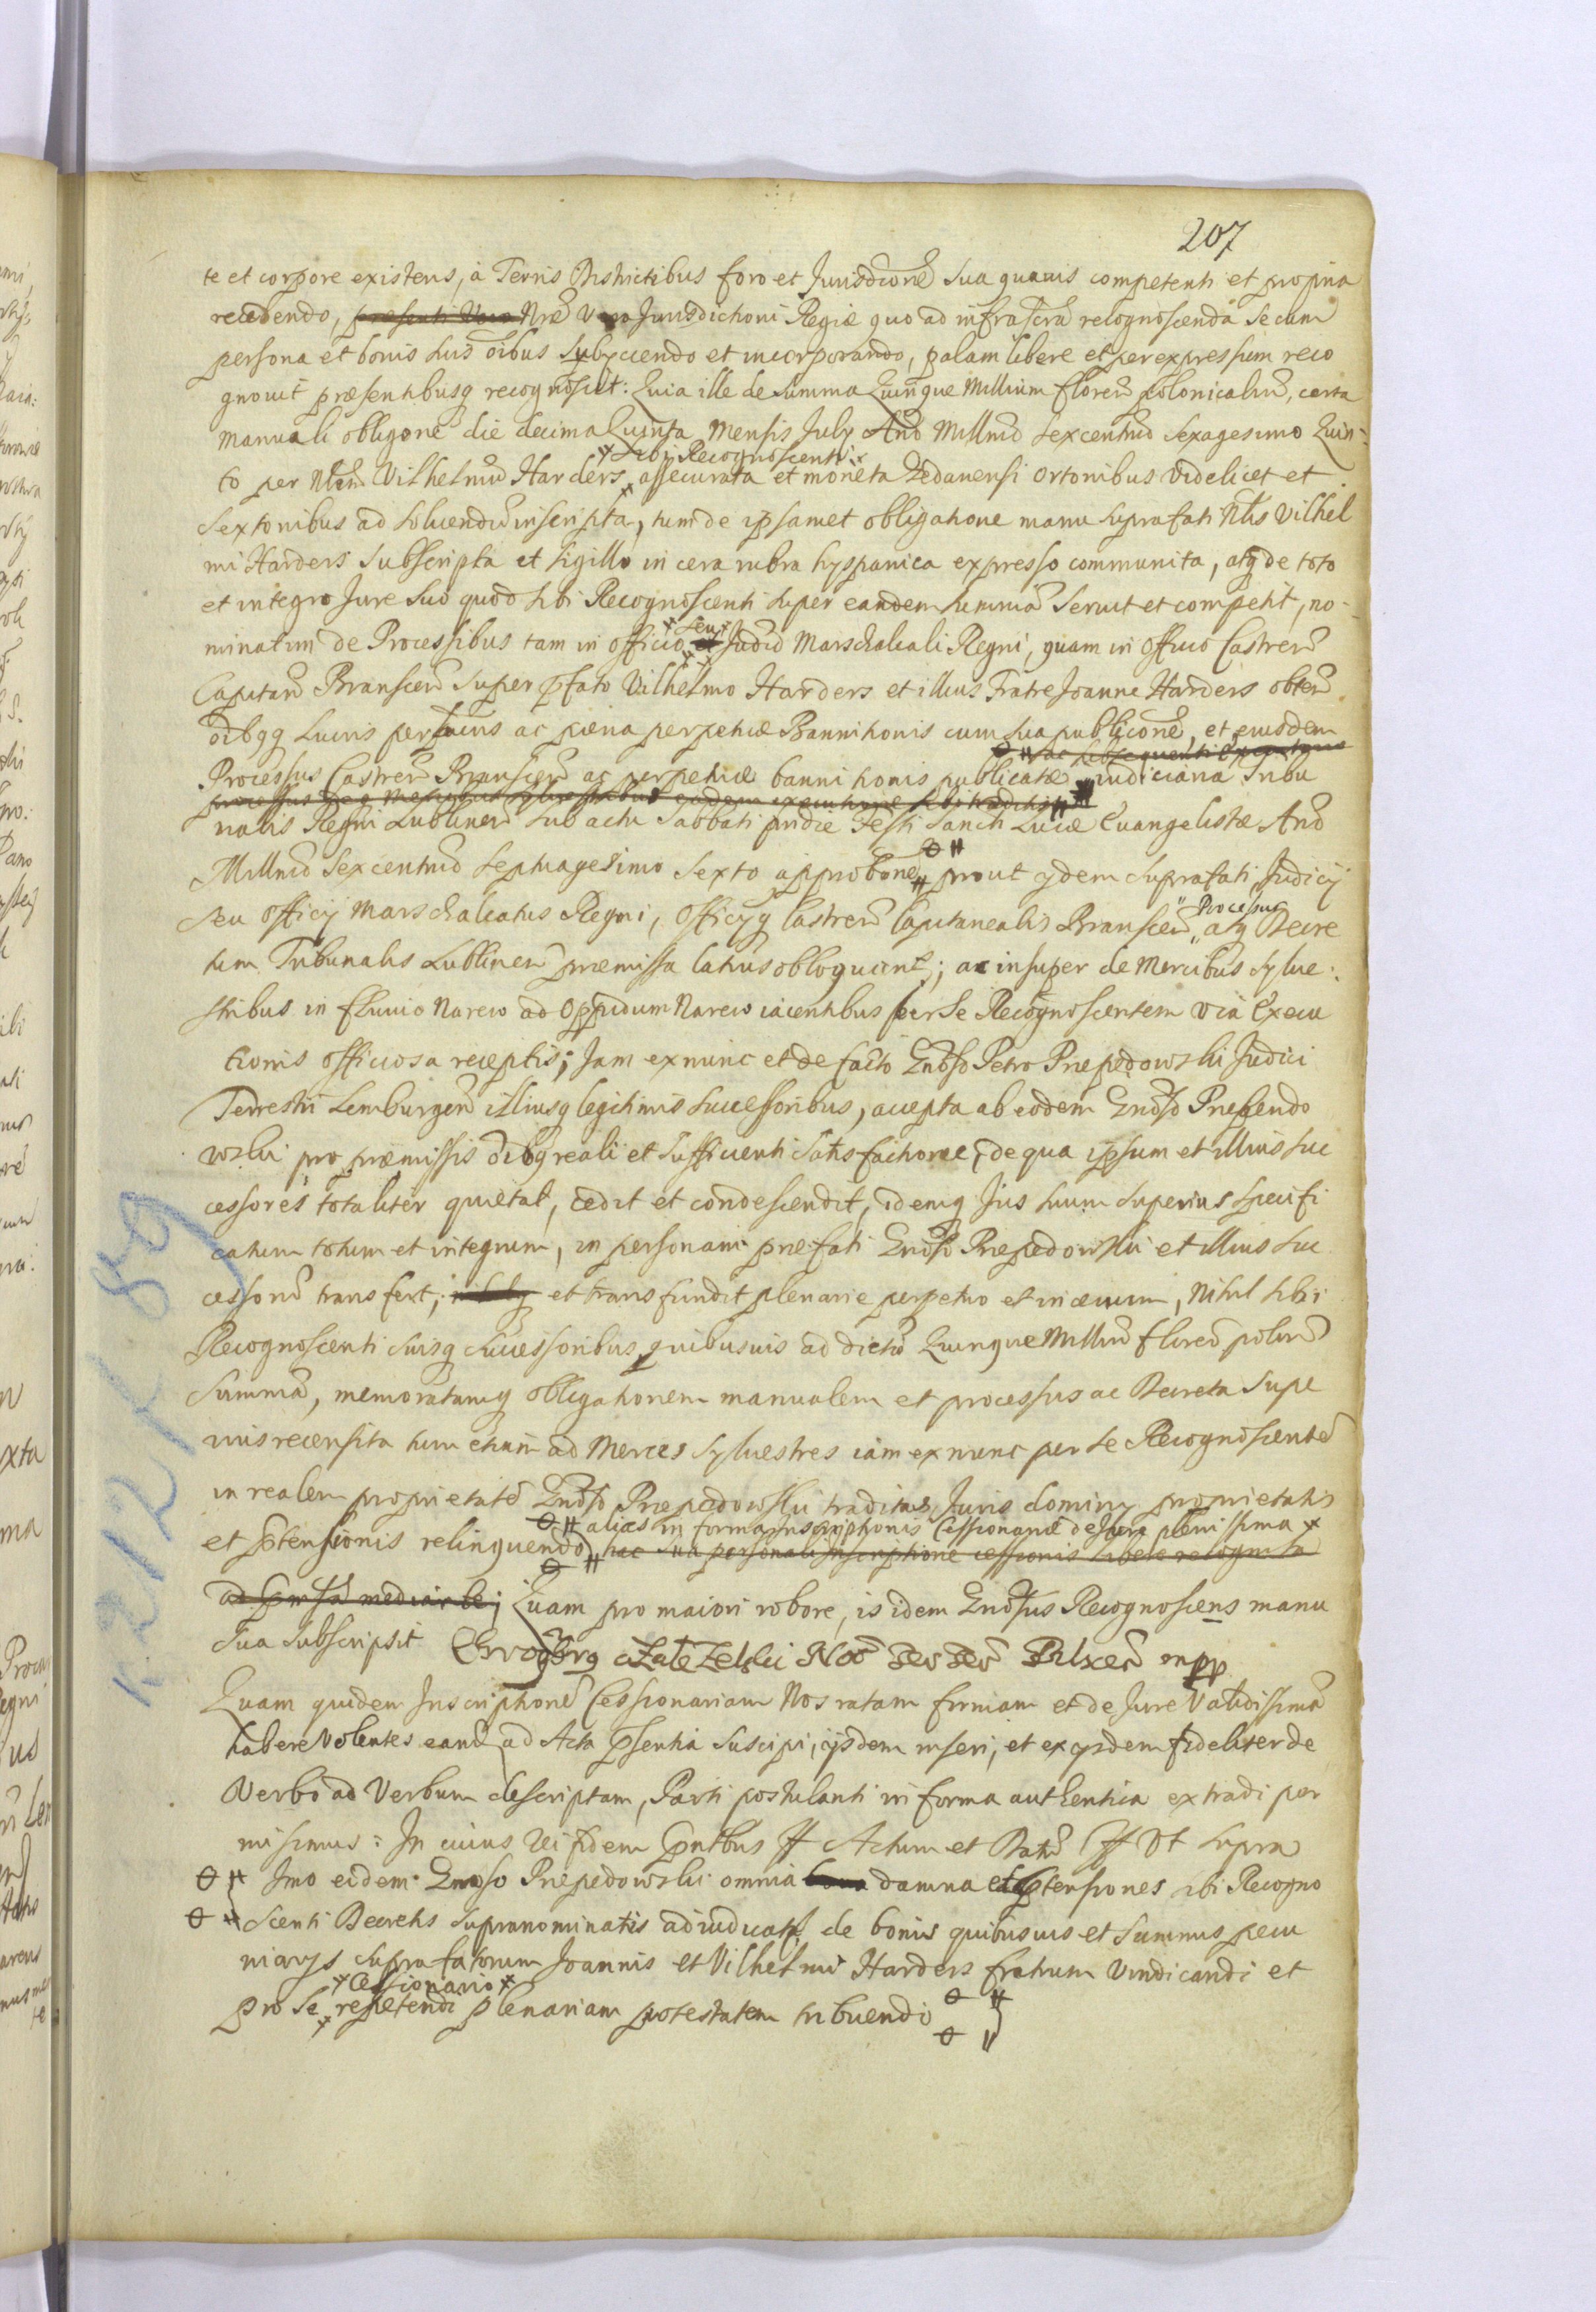 207
te et corpore existens, à Terris Districtibus foro et Jurisdicõne sua quauis competenti et propria
recedendo, præsenti Vero Nræ Vero Jurisdictioni Regiæ quo ad infrascra recognoscenda se cum
persona et bonis suis õibus subyciendo et incorporando, palam libere et per expressum reco
gnouit præsentibusq recognoscit: Quia ille de summa Quinque Millium floren polonicaliũ, certa
manuali obligõne die decima Quinta Mensis July Anõ Millmõ sexcentmõ Sexagesimo Quin-
× sibi Recognoscenti ×
to per Nlem Vilhelmũ Harders assecurata et moneta Gedanensi ortonibus videlicet et
Sextonibus ad soluendũ inscripta, tum de ipsamet obligatione manu suprafati Nlis Vilhel
mi Harders subscripta et sigillo in cera rubra hyspanica expresso communita, atq de toto
et integro Jure suo quod sibi Recognoscenti super eandem summã seruit et competit, no-
× seu ×
minatim de Processibus tam in officio et Judiõ Marschalcali Regni, quam in Officio Castren
Capitan Branscen super pfato Vilhelmo Harders et illius Fratre Joanne Harders obten
õibqq lucris perlucris ac pæna perpetuæ Bannitionis cum sua publicõne, et eiusdem
ac subsequenti executione
Processus Castren Branscen ac perpetuæ bannitionis publicatæ iudiciaria Tribu
processus de q mercibus syluestribus eadem executione sibi traditis
nalis Regni Lublinen sub actu Sabbati pridie Festi Sancti Lucæ Euangelistæ Anõ
Millmõ Sexcentmõ Septuagesimo Sexto approbõne prout ydem suprafati Judicy
Processus
seu Officy Marschalcatus Regni, Officyq Castren Capitanealis Branscen, atq Decre
tum Tribunalis Lublinen præmissa latius obloquunt; ac insuper de Mercibus sylue-
stribus in fluuio Narew ad Oppidum Narew iacentibus per se Recognoscentem via Execu
tionis officiosa receptis; Jam ex nunc et de facto Gnõso Petro Przepędowski Judici
Terrestri Lemburgen illiusq legitimis successoribus, accepta ab eodem Gnõso Przependo
wski pro præmissis õibq reali et sufficienti satisfactione, de qua ipsum et illius suc
cessores totaliter quietat, cedit et condescendit, idemq Jus suum superius specifi
catum totum et integrum, in personam præfati Gnõsi Przepędowski et illius suc
cessorũ transfert, et transfundit plenarie perpetuo et in æuum, Nihil sibi
Recognoscenti suisq successoribus quibusuis ad dictã Quinque Milliũ floren polon
Summã, memoratamq obligationem manualem et processus ac Decreta supe
rius recensita tum etiam ad Merces syluestres iam ex nunc per se Recognoscentẽ
in realem proprietatẽ Gnõso Przepędowski traditas Juris dominy proprietatis
alias in forma Inscriptionis Cessionariæ de Jure plenissima ×
et ptensionis relinquendo hac sua personali Inscriptione cessionis libere recognita
ad pmissa mediante; Quam pro maiori robore, is idem Gnõsus Recognoscens manu
sua subscripsit
mpp
Quam quidem Inscriptionẽ Cessionariam Nos ratam firmam et de Jure validissimã
habere Volentes eand ad Acta psentia suscipi, ijsdem inseri, et ex ijsdem fideliter de
Verbo ad Verbum descriptam, Parti postulanti in forma authentica extradi per
misimus: In cuius rei fidem pntibus ꝶ Actum et Datũ ꝶ Vt supra
Imo eidem Gnoso Przepędowski omnia bona damna et ptensiones sibi Recogno
scenti Decretis supranominatis adiudicat de bonis quibusuis et summis pecu
niarys suprafatorum Joannis et Vilhelmi Harders fratrum vindicandi et
× Cessionario ×
pro se repetendi plenariam potestatem tribuendo